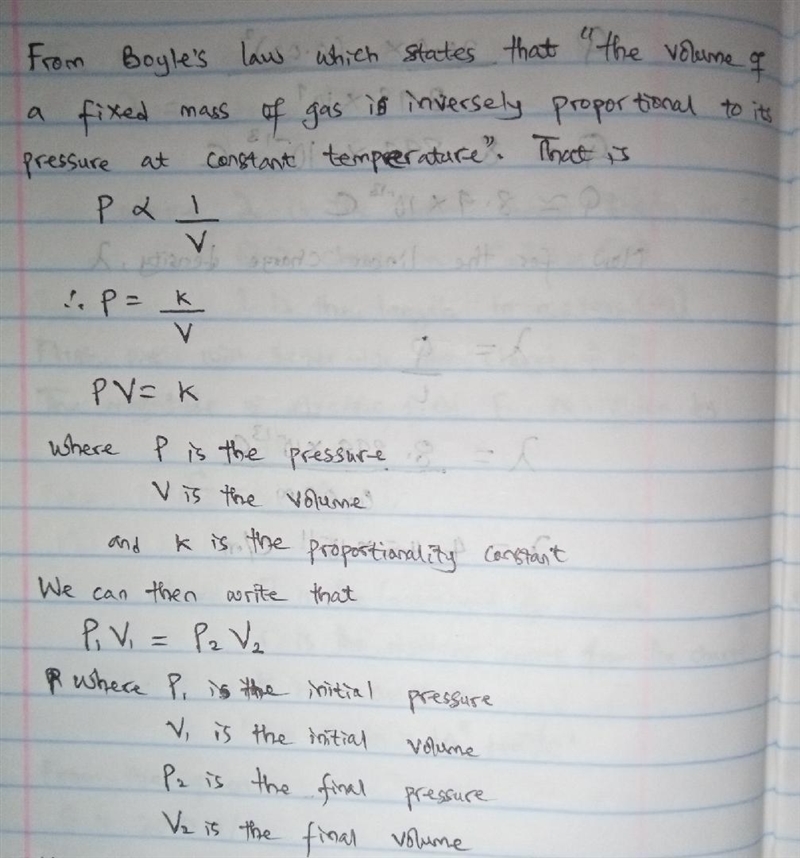 From Boyle's law which states that "the volume of
a fixed mass of gas is inversely proportional to its
pressure at constant temperature". That is
P ∝ 1/V
∴ P = k/V
PV = k
where P is the pressure
V is the volume
and k is the proportionality constant
We can then write that
P₁V₁ = P₂V₂
where P₁ is the initial pressure
V₁ is the initial volume
P₂ is the final pressure
V₂ is the final volume